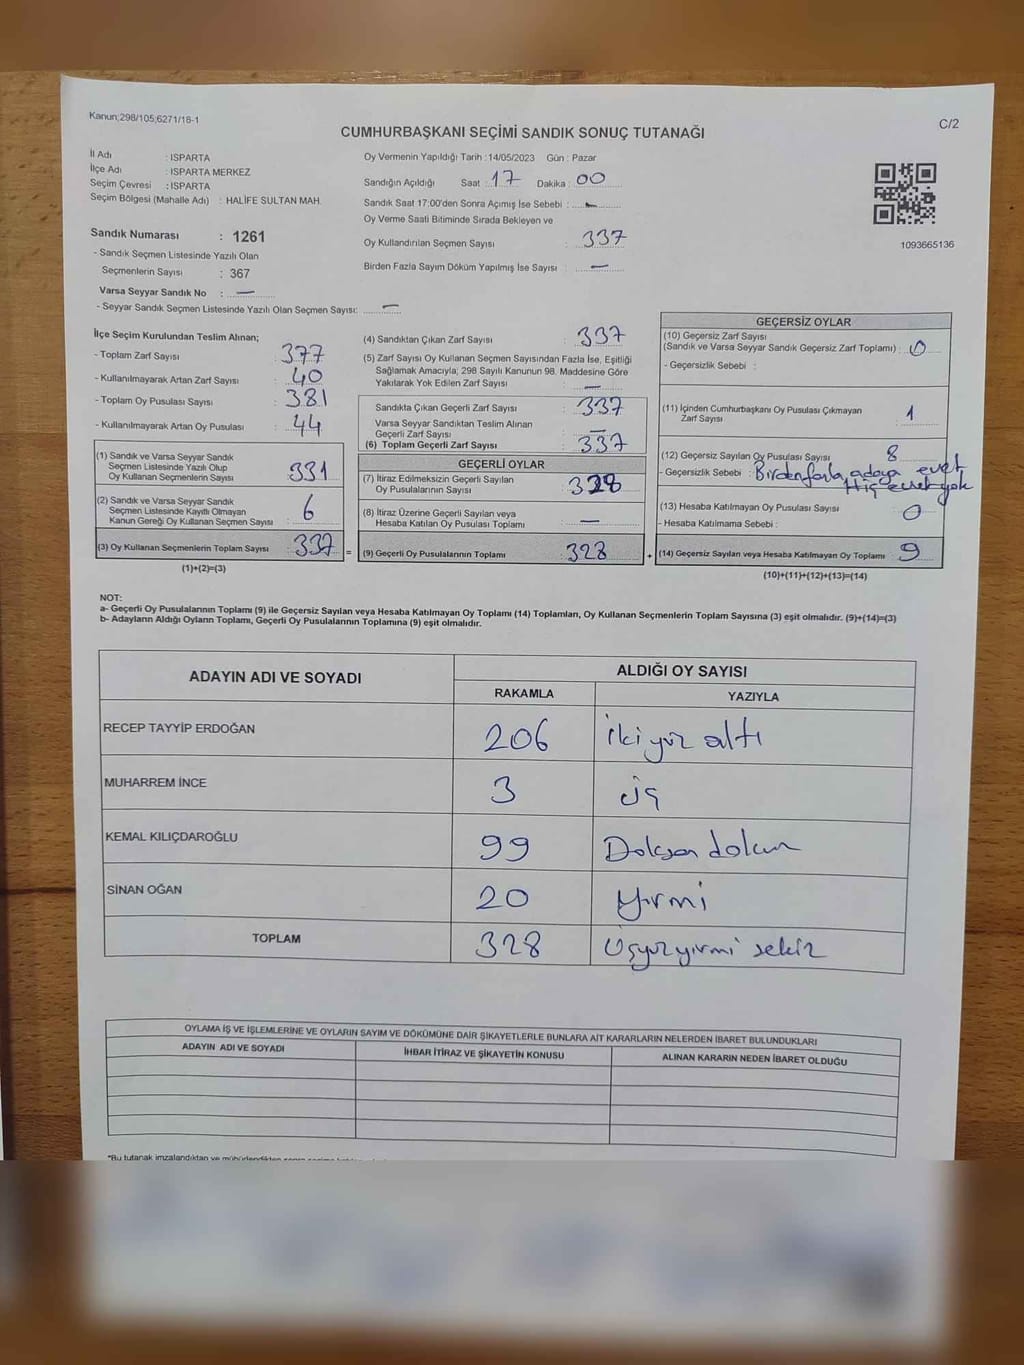 Kanun;298/105;6271/18-1
C/2
CUMHURBAŞKANI SEÇİMİ SANDIK SONUÇ TUTANAĞI
İl Adı : ISPARTA
İlçe Adı : ISPARTA MERKEZ
Seçim Çevresi : ISPARTA
Seçim Bölgesi (Mahalle Adı) : HALİFE SULTAN MAH.
Sandık Numarası : 1261
- Sandık Seçmen Listesinde Yazılı Olan
Seçmenlerin Sayısı : 367
Varsa Seyyar Sandık No : —
- Seyyar Sandık Seçmen Listesinde Yazılı Olan Seçmen Sayısı: —
Oy Vermenin Yapıldığı Tarih :14/05/2023 Gün : Pazar
Sandığın Açıldığı Saat : 17 Dakika : 00
Sandık Saat 17:00'den Sonra Açımış İse Sebebi : —
Oy Verme Saati Bitiminde Sırada Bekleyen ve
Oy Kullandırılan Seçmen Sayısı : 337
Birden Fazla Sayım Döküm Yapılmış İse Sayısı : —
1093665136
İlçe Seçim Kurulundan Teslim Alınan;
- Toplam Zarf Sayısı : 377
- Kullanılmayarak Artan Zarf Sayısı : 40
- Toplam Oy Pusulası Sayısı : 381
- Kullanılmayarak Artan Oy Pusulası : 44
(1) Sandık ve Varsa Seyyar Sandık
Seçmen Listesinde Yazılı Olup
Oy Kullanan Seçmenlerin Sayısı : 331
(2) Sandık ve Varsa Seyyar Sandık
Seçmen Listesinde Kayıtlı Olmayan
Kanun Gereği Oy Kullanan Seçmen Sayısı : 6
(3) Oy Kullanan Seçmenlerin Toplam Sayısı : 337
(1)+(2)=(3)
=
(4) Sandıktan Çıkan Zarf Sayısı : 337
(5) Zarf Sayısı Oy Kullanan Seçmen Sayısından Fazla İse, Eşitliği
Sağlamak Amacıyla; 298 Sayılı Kanunun 98. Maddesine Göre
Yakılarak Yok Edilen Zarf Sayısı : —
Sandıkta Çıkan Geçerli Zarf Sayısı : 337
Varsa Seyyar Sandıktan Teslim Alınan
Geçerli Zarf Sayısı : —
(6) Toplam Geçerli Zarf Sayısı : 337
GEÇERLİ OYLAR
(7) İtiraz Edilmeksizin Geçerli Sayılan
Oy Pusulalarının Sayısı : 328
(8) İtiraz Üzerine Geçerli Sayılan veya
Hesaba Katılan Oy Pusulası Toplamı : —
(9) Geçerli Oy Pusulalarının Toplamı : 328
+
GEÇERSİZ OYLAR
(10) Geçersiz Zarf Sayısı
(Sandık ve Varsa Seyyar Sandık Geçersiz Zarf Toplamı) : 0
- Geçersizlik Sebebi :
(11) İçinden Cumhurbaşkanı Oy Pusulası Çıkmayan
Zarf Sayısı : 1
(12) Geçersiz Sayılan Oy Pusulası Sayısı : 8
- Geçersizlik Sebebi : Birdenfazla adaya evet
Hiç evet yok
(13) Hesaba Katılmayan Oy Pusulası Sayısı : 0
- Hesaba Katılmama Sebebi :
(14) Geçersiz Sayılan veya Hesaba Katılmayan Oy Toplamı : 9
(10)+(11)+(12)+(13)=(14)
NOT:
a- Geçerli Oy Pusulalarının Toplamı (9) ile Geçersiz Sayılan veya Hesaba Katılmayan Oy Toplamı (14) Toplamları, Oy Kullanan Seçmenlerin Toplam Sayısına (3) eşit olmalıdır. (9)+(14)=(3)
b- Adayların Aldığı Oyların Toplamı, Geçerli Oy Pusulalarının Toplamına (9) eşit olmalıdır.
ADAYIN ADI VE SOYADI
ALDIĞI OY SAYISI
RAKAMLA YAZIYLA
RECEP TAYYİP ERDOĞAN 206 iki yüz altı
MUHARREM İNCE 3 üç
KEMAL KILIÇDAROĞLU 99 Doksan dokuz
SİNAN OĞAN 20 yirmi
TOPLAM 328 Üçyüzyirmi sekiz
OYLAMA İŞ VE İŞLEMLERİNE VE OYLARIN SAYIM VE DÖKÜMÜNE DAİR ŞİKAYETLERLE BUNLARA AİT KARARLARIN NELERDEN İBARET BULUNDUKLARI
ADAYIN ADI VE SOYADI İHBAR İTİRAZ VE ŞİKAYETİN KONUSU ALINAN KARARIN NEDEN İBARET OLDUĞU
*Bu tutanak imzalandıktan ve mühürlendikten sonra